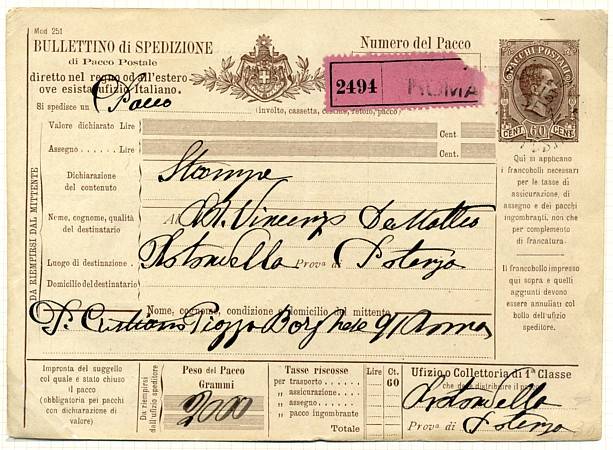 Mod 251
BULLETTINO di SPEDIZIONE
di Pacco Postale
diretto nel regno od all'estero
ove esista ufizio Italiano.
Numero del Pacco
2494 ROMA
PACCHI POSTALI
CENT 60 CENT
Si spedisce un Pacco (involto, cassetta, cestino, rotolo, pacco)
DA RIEMPIRSI DAL MITTENTE
Valore dichiarato Lire Cent.
Assegno Lire Cent.
Dichiarazione
del contenuto
Stampe
Nome, cognome, qualità
del destinatario
Al Vincenzo De Matteo
Luogo di destinazione Prova di Potenza
Domicilio del destinatario
Nome, cognome, condizione e domicilio del mittente
Cristiano Piazza Borghese 91 Roma
Qui si applicano
i francobolli necessari
per le tasse di
assicurazione, di
assegno e dei pacchi
ingombranti, non che
per complemento
di francatura.
Il francobollo impresso
qui sopra e quelli
aggiunti devono
essere annullati col
bollo dell'ufizio
speditore.
Impronta del suggello
col quale è stato chiuso
il pacco
(obbligatoria pei pacchi
con dichiarazione di
valore)
Da riempirsi
dall'ufizio speditore
Peso del Pacco
Grammi
2000
Tasse riscosse
per trasporto
„ assicurazione
„ assegno
„ pacco ingombrante
Totale
Lire Ct.
60
Ufizio o Collettoria di 1ª Classe
che deve distribuire il pacco
Prova di Potenza